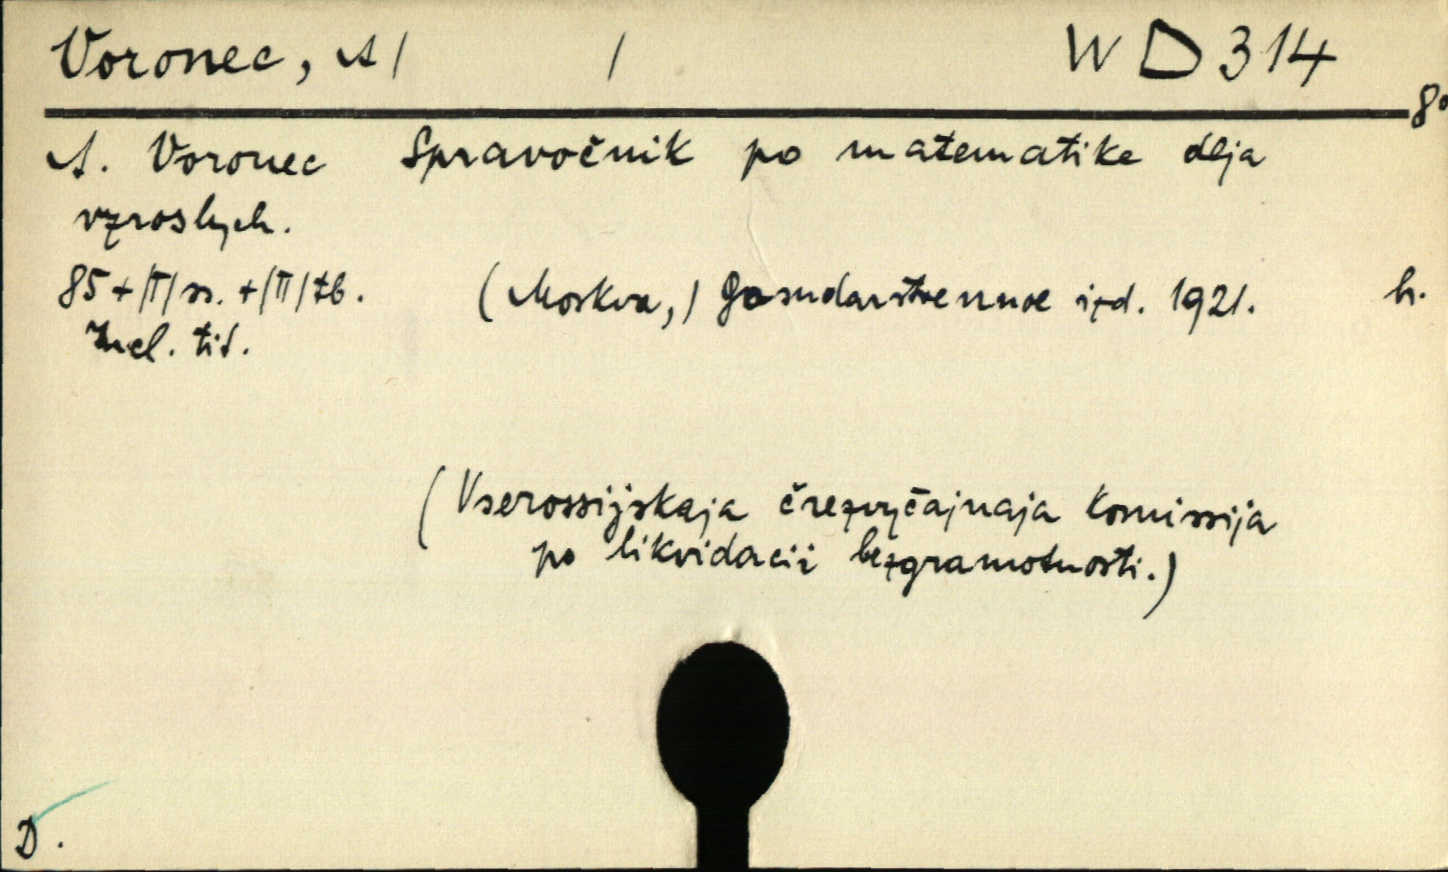 Voronec, A/ / W D 314
8°
A. Voronec Spravočnik po matematike dlja
vzroslych.
85 + /II/ ss. + /II/ tb. (Moskva,) Gosudarstvennoe izd. 1921. h.
Incl. tit.
(Vserossijskaja črezvyčajnaja komissija
po likvidacii bezgramotnosti.)
D.